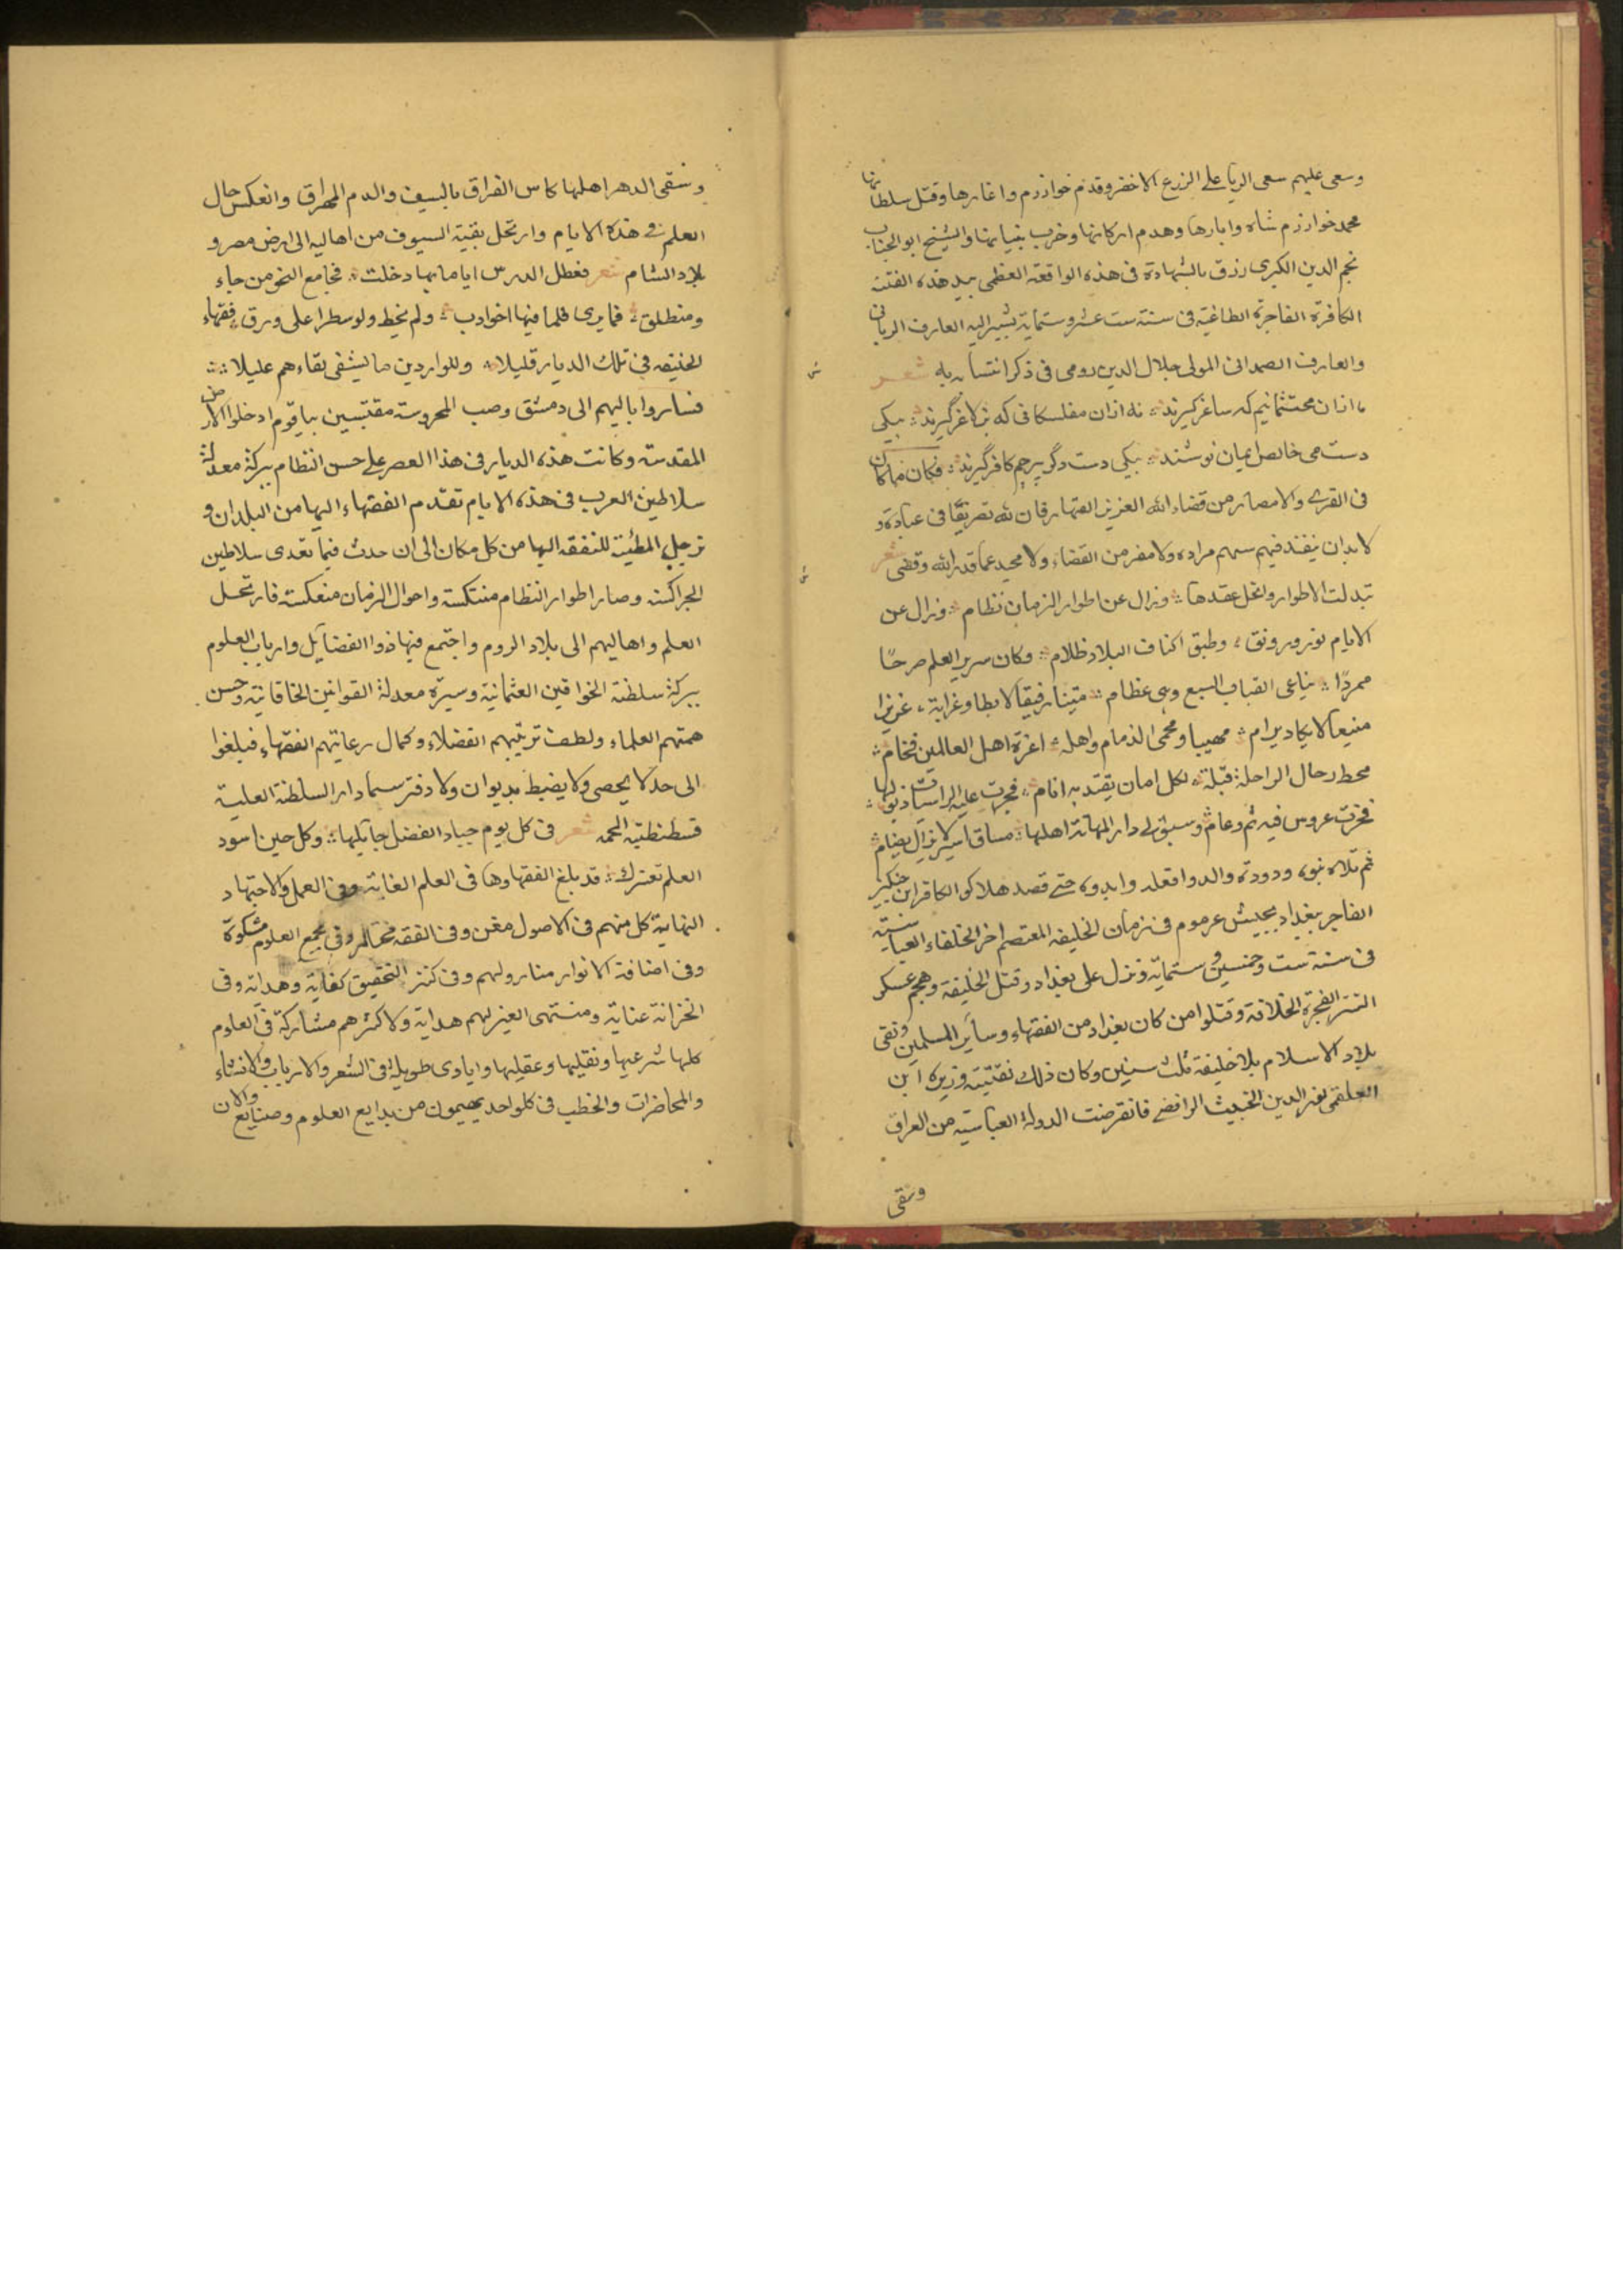 وسعى عليهم سعى الريا على الزرع الاخضر وقدم خوارزم واغارها وقتل سلطانها
محمد خوارزم شاه وابارها وهدم اركانها وخرب بنيانها والشيخ ابو الجناب
نجم الدين الكبرى رزق بالشهادة فى هذه الواقعة العظمى بيد هذه الفتنة
الكافرة الفاجرة الطاغية فى سنة ست عشر وستماية يشير اليه العارف الربانى
والعارف الصمدانى المولى جلال الدين رومى فى ذكر انتسابه به شعر
ما ازان محتشمانيم كه ساغر كيرند نه ازان مفلسكانى كه بز لاغر كيرند بيكى
دست مى خالص ايمان نوشند بيكى دست دگر پرچم كافر گيرند فكان مما كان
فى القرى والامصار من قضاء الله العزيز القهار فان لله تصريفا فى عباده و
لا بد ان ينفذ فيهم سهم مراده ولا مفر من القضاء ولا محيد عما قدر الله وقضى شعر
تبدلت الاطوار وانحل عقدها وزال عن اطوار الزمان نظام وزال عن
الايام نور ورونق وطبق اكناف البلاد ظلام وكان سرير العلم صرحا
ممردا يناغى القباب السبع وهى عظام متينا رفيقا لا يطا وغرابة عزيزا
منيعا لا يكاد يرام مهيبا ومحمى الذمام واهله اعزة اهل العالمين فخام
محط رحال الراحلة قبلة لكل امان يقتد به انام فجرت عليه الراسيات ذيولها
فخرت عروس فيه ثم دعام وسبق الى دار المهانة اهلها مساق اسير لا يزال يضام
ثم تلاه بنوه ودودة والدوا فعله وابدوه حتى قصد هلاكو الكافر ابن جنكيز
الفاجر بغداد بجيش عرموم فى زمان الخليفه المعتصم اخر الخلفاء العباسية
فى سنة ست وخمسين وستماية ونزل على بغداد وقتل الخليفة وهجم عسكر
التتر الفجرة الخلافة وقتلوا من كان بغداد من الفقهاء وساير المسلمين وبقى
بلاد الاسلام بلا خليفة ثلث سنين وكان ذلك وزيره ابن
العلقمى الدين الخبيث الرافضى فانقرضت الدولة العباسية من العراق
وسقى
وسقى الدهر اهلها كاس الفراق بالسيف والدم المهراق وانعكس حال
العلم فى هذه الايام وارتحل بقية السيوف من اهاليه الى ارض مصر و
بلاد الشام شعر فعطل الدرس اياما بها دخلت فجامع النحو من جاء
ومنطلق فما يرى قلما فيها اخو ادب ولم يخط ولو سطرا على ورق فقهاء
الحنيفه فى تلك الديار قليلا وللواردين ما يشفى بقاءهم عليلا
فساروا باليهم الى دمشق وصب المحروسة مقتبسين بيا قوم ادخلوا الارض
المقدسة وكانت هذه الديار فى هذا العصر على حسن انتظام ببركة معدلة
سلاطين العرب فى هذه الايام تقدم الفقهاء اليها من البلدان و
ترحل المطية للتفقه اليها من كل مكان الى ان حدث فيما تعدى سلاطين
الجراكسة وصار اطوار انتظام منتكسة واحوال الزمان منعكسة فارتحل
العلم واهاليهم الى بلاد الروم واجتمع فيها ذوا الفضايل وارباب العلوم
ببركة سلطنة الخواقين العثمانية وسيرة معدلة القوانين الخاقانية وحسن
همتهم العلماء ولطف تربيتهم الفضلاء وكمال رعايتهم الفقهاء فبلغوا
الى حد لا يحصى ولا يضبط بديوان ولا دفتر سيما دار السلطنة العلية
قسطنطنية المحمه شعر فى كل يوم جياد الفضل جايلها وكل حين اسود
العلم تعترك قد بلغ الفقهاوها فى العلم الغاية وفى العمل والاجتهاد
النهاية كل منهم فى الاصول مغن وفى الفقه مختار وفى مجمع العلوم مشكوة
وفى اضافة الانوار منار ولهم وفى كنز التحقيق كفاية وهداية وفى
الخزانة عناية ومنتهى الغير لهم هداية ولاكثرهم مشاركة فى العلوم
كلها شرعيها ونقليها وعقليها وايادى طويلة فى الشعر والارباب والانشاء
والمحاضرات والخطب فى كلواحد يهيمون من بدايع العلوم وصنايع والان